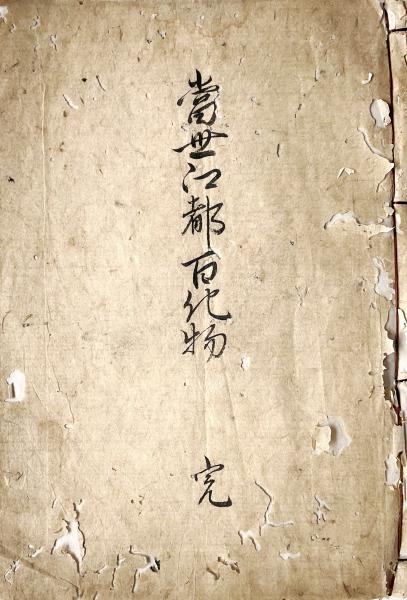 當世江都百化物
完